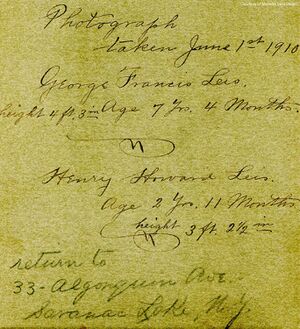 Photograph
taken June 1st 1910
George Francis Leis.
height 4 ft. 3 in Age 7 Yrs. 4 Months.
Henry Howard Leis.
Age 2 Yrs. 11 Months
height 3 ft. 2½ in
return to
33- Algonquin Ave.
Saranac Lake, N.Y.